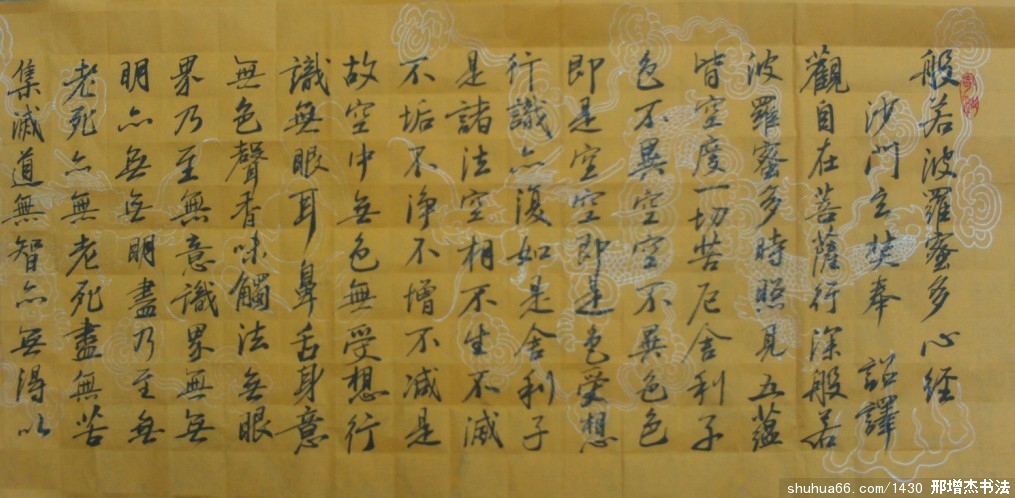 般若波羅蜜多心经
沙門玄奘奉 詔譯
觀自在菩薩行深般若
波羅蜜多時照見五蕴
皆空度一切苦厄舍利子
色不異空空不異色色
即是空空即是色受想
行識亦復如是舍利子
是諸法空相不生不滅
不垢不净不增不减是
故空中無色無受想行
識無眼耳鼻舌身意
無色聲香味觸法無眼
界乃至無意識界無無
明亦無無明盡乃至無
老死亦無老死盡無苦
集滅道無智亦無得以
shuhua66.com/1430 邢增杰书法